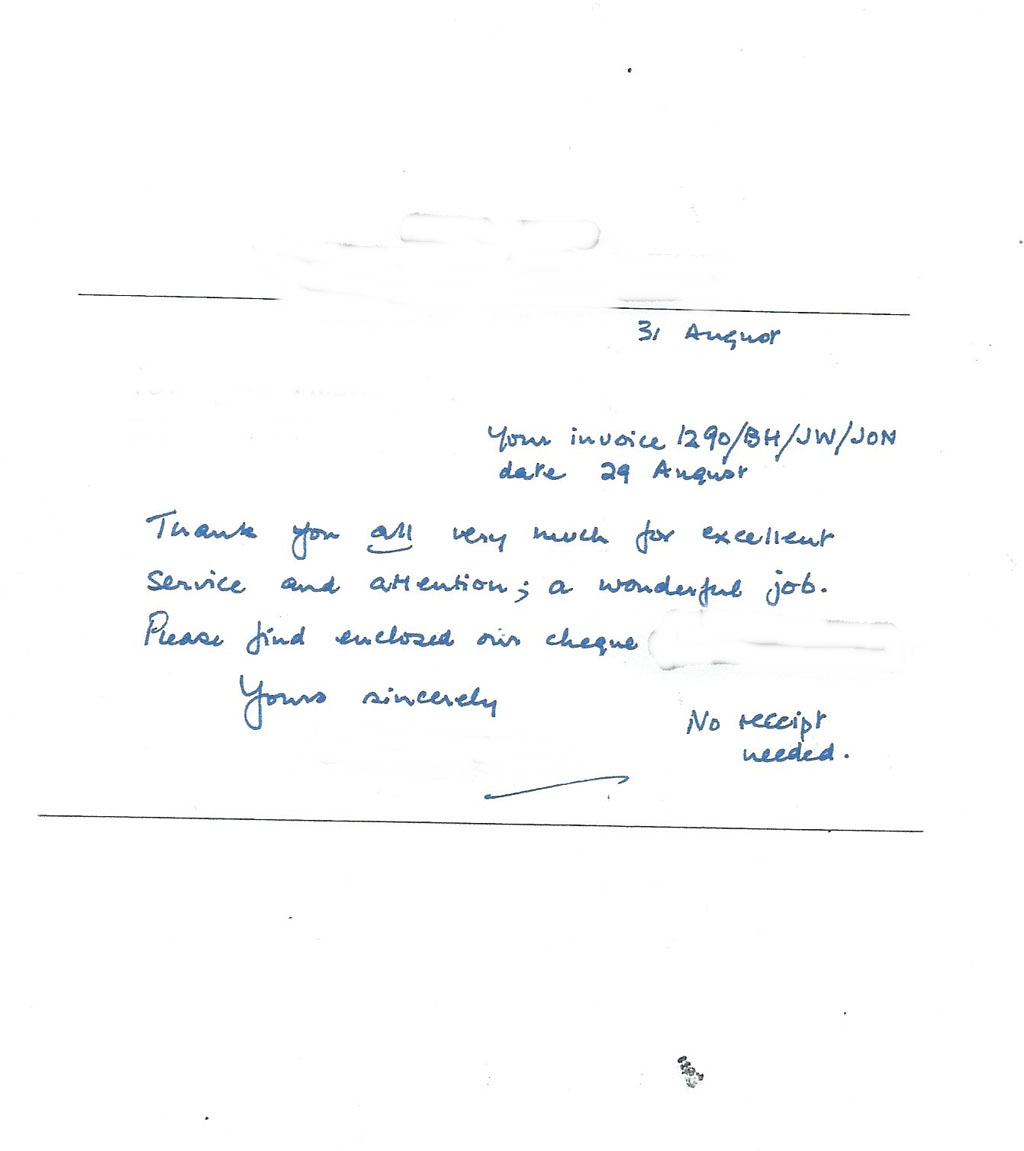 31 August
Your invoice 1290/BH/JW/JON
date 29 August
Thank you all very much for excellent
service and attention; a wonderful job.
Please find enclosed our cheque
Yours sincerely
No receipt
needed.